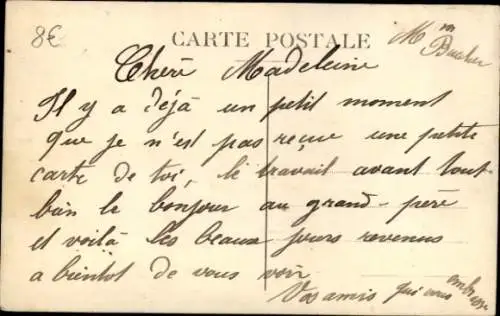 8€
CARTE POSTALE
Mon
Cheri Madeleine
Il y a déjà un petit moment
que je n'est pas reçue une petite
carte de toi, le travail avant tout
bien le bonjour au grand-père
et voilà les beaux jours revenus
a bientot de vous voir
Vos amis qui vous embrasse